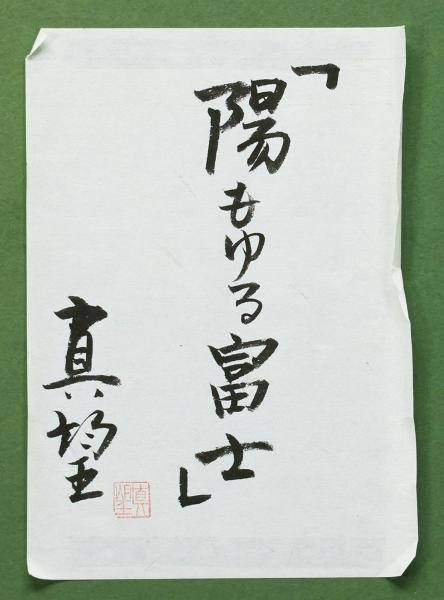 「陽もゆる富士」
真望
真望